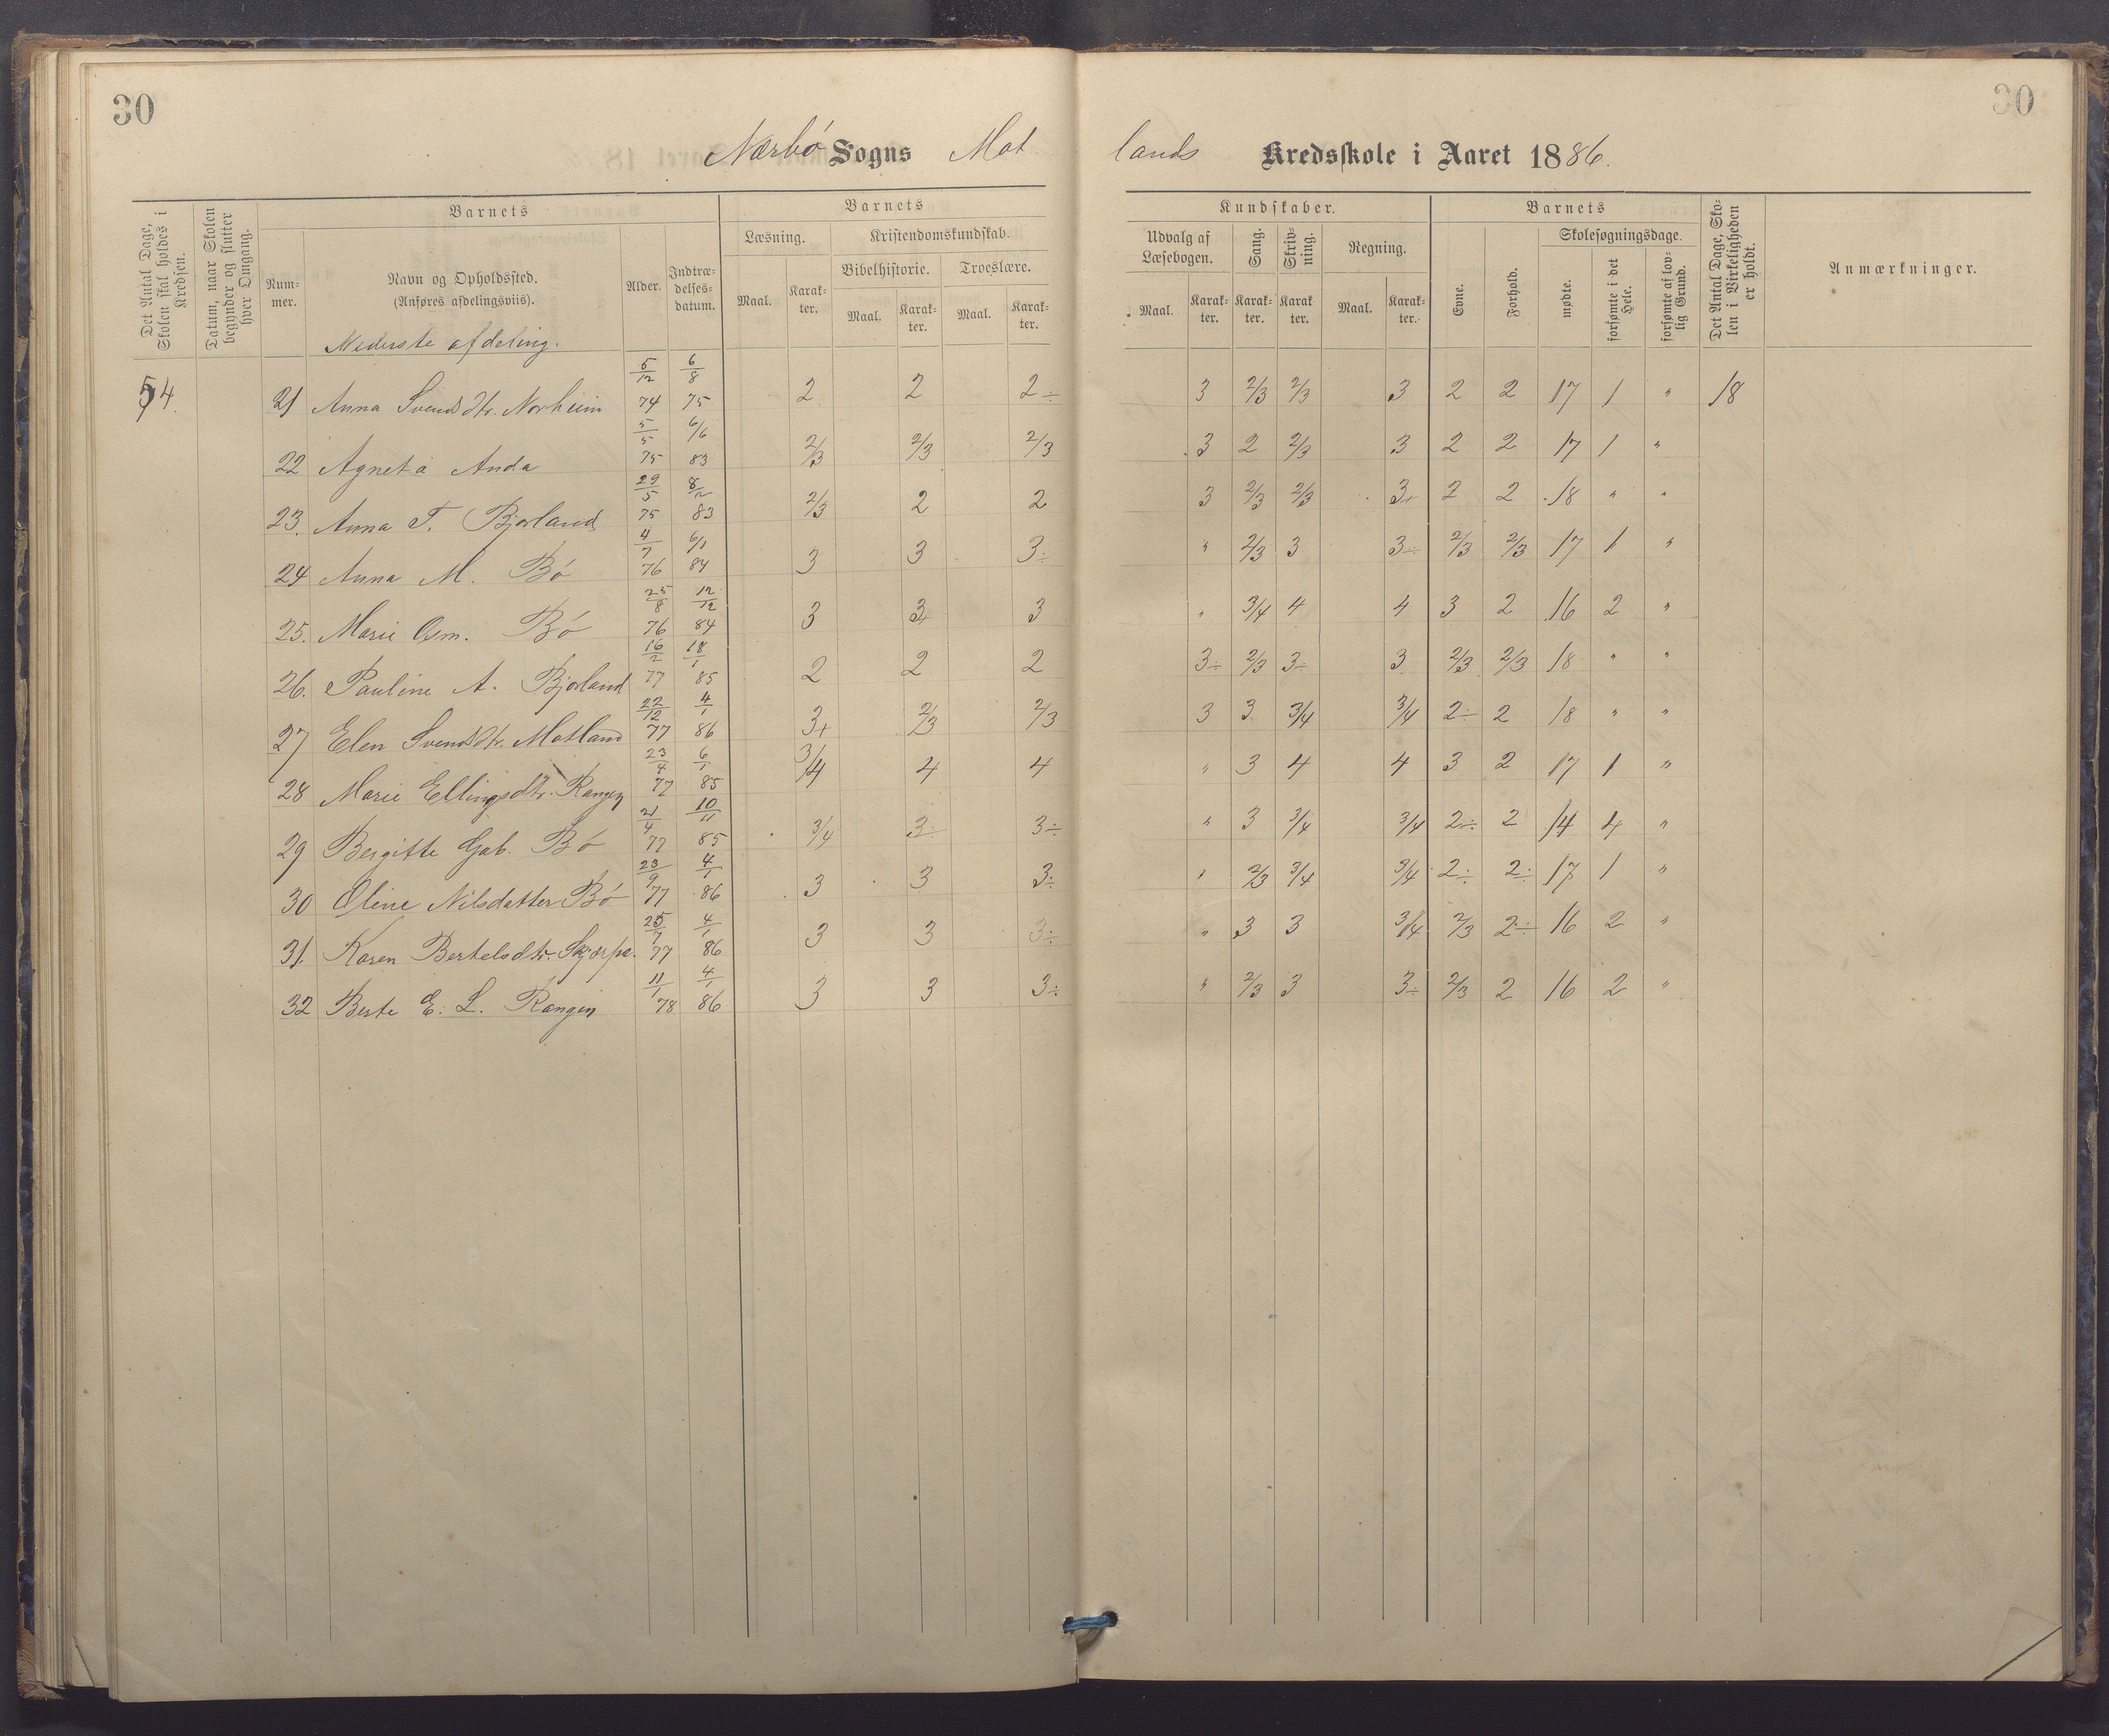 30
30
Nærbø Sogns Mat
lands Kredsskole i Aaret 1886.
Det Antal Dage, Skolen skal holdes i Kredsen.
Datum, naar Skolen begynder og slutter hver Omgang.
Barnets
Num-mer.
Navn og Opholdssted.
(Anføres afdelingsviis).
Alder.
Indtræ-delses-datum.
Barnets
Læsning.
Maal.
Karak-ter.
Kristendomskundskab.
Bibelhistorie.
Maal.
Karak-ter.
Troeslære.
Maal.
Karak-ter.
Kundskaber.
Udvalg af Læsebogen.
Maal.
Karak-ter.
Sang.
Karak-ter.
Skriv-ning.
Karak ter.
Regning.
Maal.
Karak-ter.
Barnets
Evne.
Forhold.
Skolesøgningsdage.
mødte.
forsømte i det Hele.
forsømte af lov-lig Grund.
Det Antal Dage, Sko-len i Virkeligheden er holdt.
Anmærkninger.
Nederste afdeling.
54. 21 Anna Svendsdtr. Norheim 5/12 74 6/8 75 2 2 2÷ 3 2/3 2/3 3 2 2 17 1 " 18
22 Agneta Anda 5/5 75 6/6 83 2/3 2/3 2/3 3 2 2/3 3 2 2 17 1 "
23. Anna T. Bjorland 29/5 75 8/2 83 2/3 2 2 3 2/3 2/3 3+ 2 2 18 " "
24 Anna M. Bó 4/7 76 6/1 84 3 3 3÷ " 2/3 3 3÷ 2/3 2/3 17 1 "
25. Marie Osm. Bó 25/8 76 12/12 84 3 3+ 3 " 3/4 4 4 3 2 16 2 "
26. Pauline A. Bjorland 16/2 77 18/1 85 2 2 2 3÷ 2/3 3÷ 3 2/3 2/3 18 " "
27 Elen Svendsdtr. Matland 22/12 77 4/1 86 3+ 2/3 2/3 3 3 3/4 3/4 2÷ 2 18 " "
28 Marie Ellingsdtr. Rangen 23/4 77 6/1 85 3/4 4 4 " 3 4 4 3 2 17 1 "
29 Bergitte Gab. Bó 21/4 77 10/11 85 3/4 3÷ 3÷ " 3 3/4 3/4 2÷ 2 14 4 "
30 Oline Nilsdatter Bó 23/9 77 4/1 86 3 3 3÷ " 2/3 3/4 3/4 2÷ 2÷ 17 1 "
31. Karen Bertelsdtr. Skjærpe. 25/7 77 4/1 86 3 3 3÷ " 3 3 3/4 2/3 2÷ 16 2 "
32 Berte E. L. Rangen 11/1 78 4/1 86 3 3 3÷ " 2/3 3 3÷ 2/3 2 16 2 "